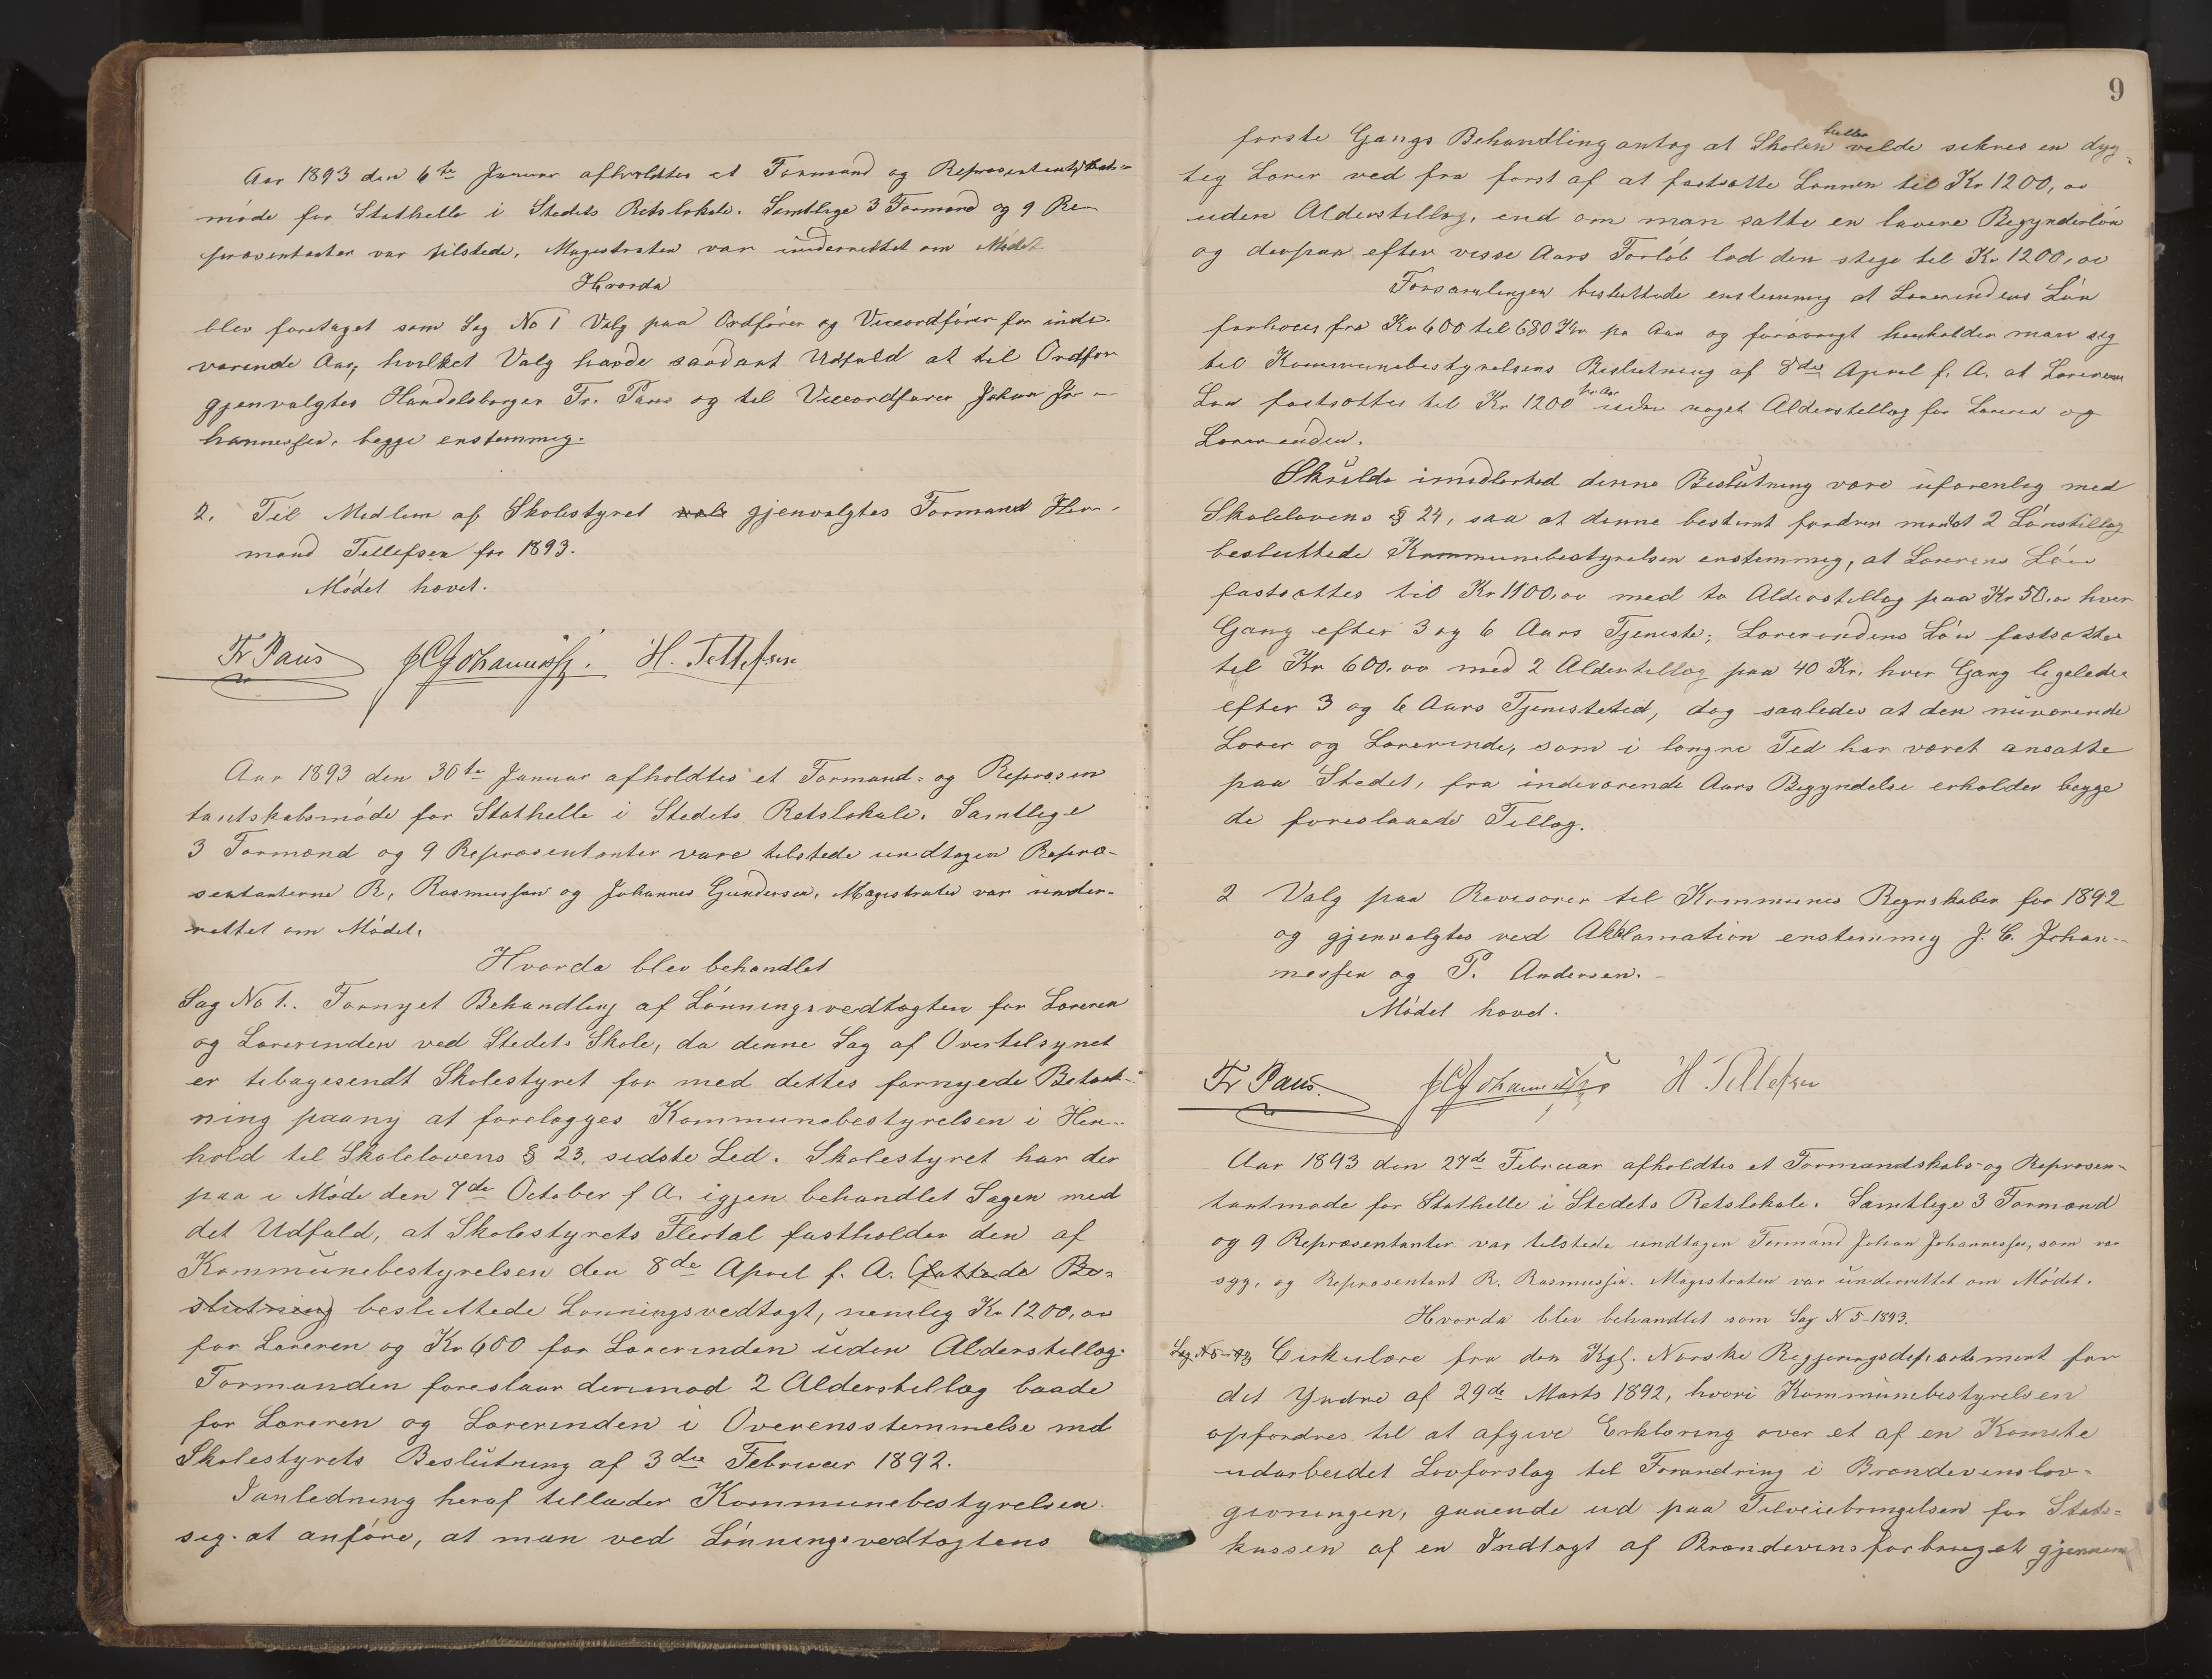 Aar 1893 den 6te Januar afholdtes et Formand og Repræsentantskabs-
møde for Stathelle i Stedets Retslokale. Samtlige 3 Formænd og 9 Re-
præsentanter var tilstede. Magistraten var underrettet om Mødet
Hvorda
blev foretaget som Sag No 1 Valg paa Ordfører og Viceordfører for inde-
værende Aar, hvilket Valg havde saadant Udfald at til Ordfør
gjenvalgtes Handelsborger Fr. Paus og til Viceordfører Johan Jo-
hannessen, begge enstemmig.
2. Til Medlem af Skolestyret valg gjenvalgtes Formand Her-
mand Tellefsen for 1893.
Mødet hævet.
Fr Paus J C Johannessen. H. Tellefsen
Aar 1893 den 30te Januar afholdtes et Formand- og Repræsen
tantskabsmøde for Stathelle i Stedets Retslokale. Samtlige
3 Formænd og 9 Repræsentanter vare tilstede undtagen Repræ-
sentanterne R. Rasmussen og Johannes Gundersen. Magistraten var under-
rettet om Mødet.
Hvorda blev behandlet
Sag No 1. Fornyet Behandling af Lønningsvedtægten for Læreren
og Lærerinden ved Stedets Skole, da denne Sag af Overtilsynet
er tilbagesendt Skolestyret for med dettes fornyede Betænk-
ning paany at forelægges Kommunebestyrelsen i Hen-
hold til Skolelovens § 23, sidste Led. Skolestyret har der
paa i Møde den 7de October f. A. igjen behandlet Sagen med
det Udfald, at Skolestyrets Flertal fastholder den af
Kommunebestyrelsen den 8de April f. A. (fattede Be-
slutning) besluttede Lønningsvedtægt, nemlig Kr 1200,00
for Læreren og Kr 600 for Lærerinden uden Alderstillæg.
Formanden foreslaar derimod 2 Alderstillæg baade
for Læreren og Lærerinden i Overensstemmelse md
Skolestyrets Beslutning af 3die Februar 1892.
I anledning heraf tillader Kommunebestyrelsen
sig at anføre, at man ved Lønningsvedtægtens
9
første Gangs Behandling antog at Skolen heller vilde sikres en dyg-
tig Lærer ved fra først af at fastsætte Lønnen til Kr 1200,00
uden Alderstillæg, end om man satte en lavere Begynderløn
og derpaa efter visse Aars Forløb lod den stige til Kr. 1200,00
Forsamlingen besluttede enstemmig at Lærerindens Løn
forhøies fra Kr 600 til 680 Kr pr Aar og forøvrigt henholder man sig
til Kommunebestyrelsens Beslutning af 8de April f. A. at Lærerens
Løn fastsættes til Kr 1200 pr. Aar uden noget Alderstillæg for Læreren og
Lærerinden.
Skulde imidlertid denne Beslutning være uforenlig med
Skolelovens § 24, saa at denne bestemt fordrer mindst 2 Lønstillæg
besluttede Kommunebestyrelsen enstemmig, at Lærerens Løn
fastsættes til Kr 1100,00 med to Alderstillæg paa Kr 50,00 hver
Gang efter 3 og 6 Aars Tjeneste; Lærerindens Løn fastsættes
til Kr 600.00 med 2 Alderstillæg paa 40 Kr. hver Gang ligeledes
efter 3 og 6 Aars Tjenestetid, dog saaledes at den nuværende
Lærer og Lærerinde, som i længre Tid har været ansatte
paa Stedet, fra indeværende Aars Begyndelse erholder begge
de foreslaaede Tillæg.
2 Valg paa Revisorer til Kommunes Regnskaber for 1892
og gjenvalgtes ved Akklamation enstemmig J. C. Johan-
nessen og P. Andersen. -
Mødet hævet.
Fr Paus. J C Johannessen H Tellefsen
Aar 1893 den 27de Februar afholdtes et Formandskabs- og Repræsen-
tantmøde for Stathelle i Stedets Retslokale. Samtlige 3 Formænd
og 9 Repræsentanter var tilstede undtagen Formand Johan Johannessen, som var
syg, og Repræsentant R. Rasmussen. Magistraten var underrettet om Mødet.
Hvorda blev behandlet som Sag N 5-1893.
Sag N 5-93 Cirkulære fra den Kgl. Norske Regjeringsdepartement for
det Yndre af 29de Marts 1892, hvori Kommunebestyrelsen
opfordres til at afgive Erklæring over et af en Komite
udarbeidet Lovforslag til Forandring i Brændevinslov-
givningen, gaaende ud paa Tilveiebringelsen for Stats-
kassen af en Indtægt af Brændevinsforbruget gjennem